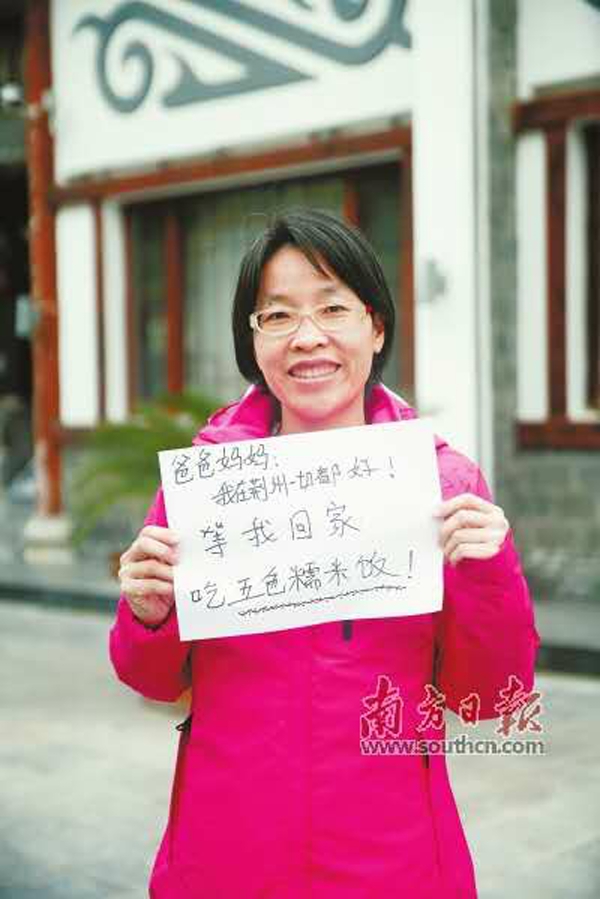 爸爸妈妈：
我在荆州一切都好！
等我回家
吃五色糯米饭！
南方日报
www.southcn.com